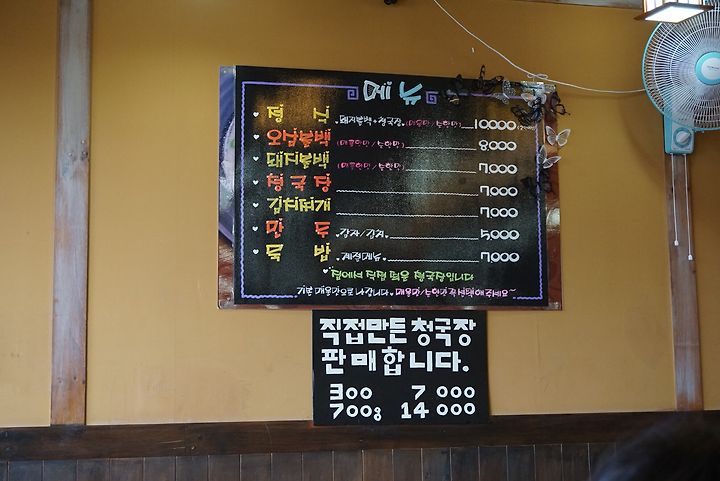 메뉴
정 ㅗ ♥돼지불백+청국장♥(매콤한맛/순한맛) 10,000
오삼불백 (매콤한맛/순한맛) 8,000
돼지불백 (매콤한맛/순한맛) 7,000
청국장 7,000
김치찌개 7,000
만두 ♥감자/김치 5,000
묵밥 ♥계절메뉴 7,000
♥집에서 직접 띄운 청국장입니다
기본 매운맛으로 나갑니다.
직접만든 청국장
판매합니다.
300 7 000
700g 14 000